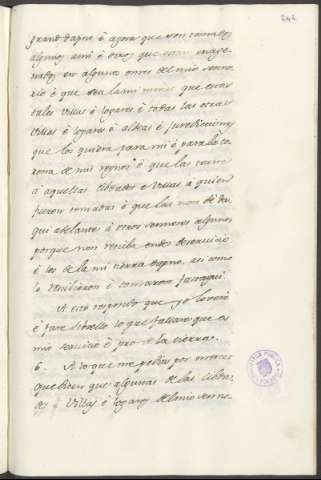 242
grand dapno é agora que son tomados
algunos ami é otros que estan enage-
nados en algunos omes del mio senno-
rio é que sea la mi merced que estas
tales villas é logares é todas las otras
villas é logares é aldeas é juredicciones
que los quiera para mi é para la co-
rona de mis regnos é que las torne
a aquellas cibdades e villas á quien
fueron tomadas é que las non dé da-
qui adelante á otros sennores algunos
porque non reciba ende deservicio
é los de la mi tierra dapno, asi como
lo recibieron é tomaron fasta aqui.
A esto respondo que yo lo veré
é faré sobrello lo que fallare que es
mio servicio é pro de la tierra.
6. A lo que me pedides por merced
que bien que algunas de las cibda-
des é villas é logares del mio senno-